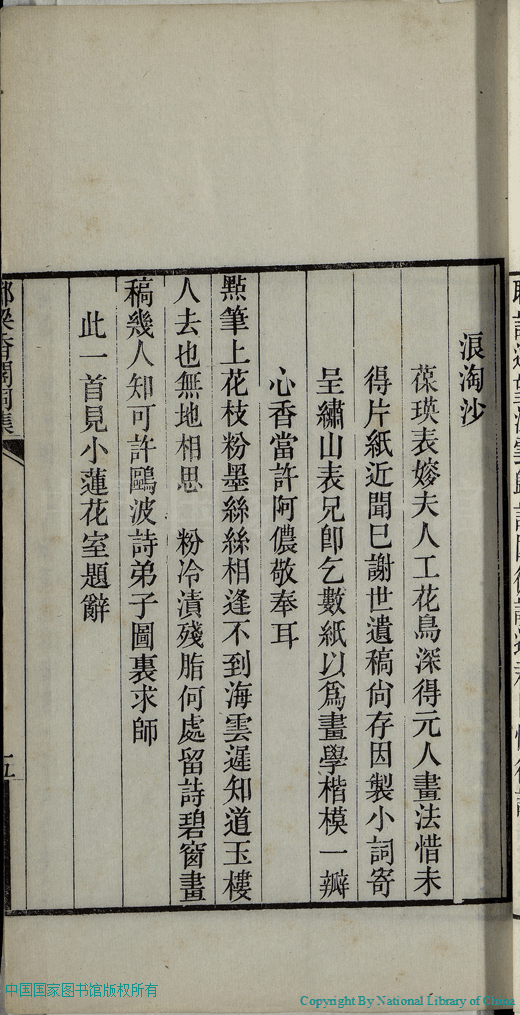 浪淘沙
葆瑛表嫂夫人工花鳥深得元人畫法惜未
得片紙近聞已謝世遺稿尚存因製小詞寄
呈繡山表兄卽乞數紙以爲畫學楷模一瓣
心香當許阿儂敬奉耳
㸃筆上花枝粉墨絲絲相逢不到海雲遲知道玉樓
人去也無地相思 粉冷漬殘脂何處留詩碧窗畫
稿幾人知可許鷗波詩弟子圖裏求師
此一首見小蓮花室題辭
五
中国国家图书馆版权所有
Copyright By National Library of China